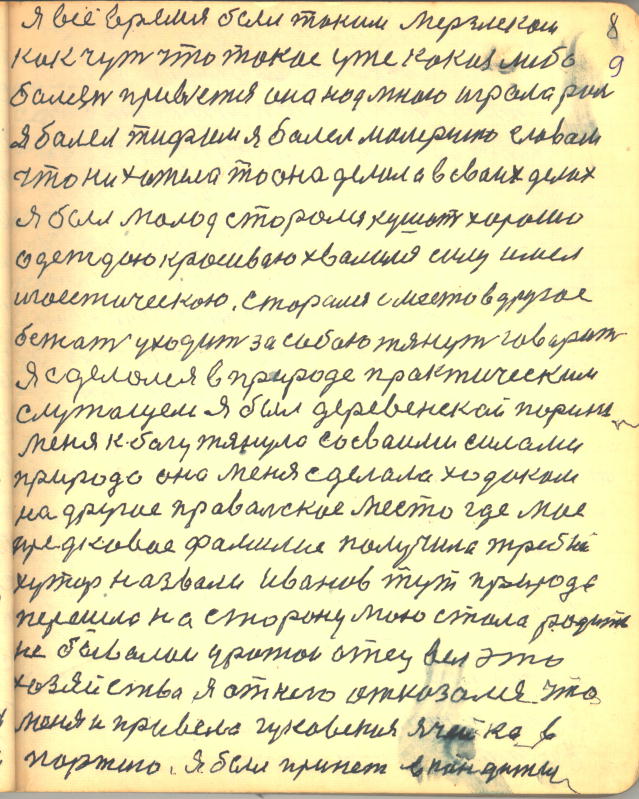 8
Я всё время были таким мерзлеком
9
как чут что такое уже какая либо
болезн привется она надмною играла рол
Я балел тифам я балел малерыю словам
что ни хотела то она делала в сваих делах
Я был молод старался кушат хорошо
одеждою красиваю хвалился силу имел
игоестическою. старался с места в другое
бежат уходит за собаю тянут говарит
Я сделался в природе практическим
служащем я был деревенской парин
меня к богу тянуло со сваими силами
природа она меня сделала ходоком
на другое правалское место где мое
предковое фамилие получила
хутор назвали Иванов тут природа
перешла на сторону мою стала родить
не бывалаи урожаи отец вел это
хозяйства я от него отказался что
меня и привела гуковския ячейка в
партию. Я был принет в кандиты